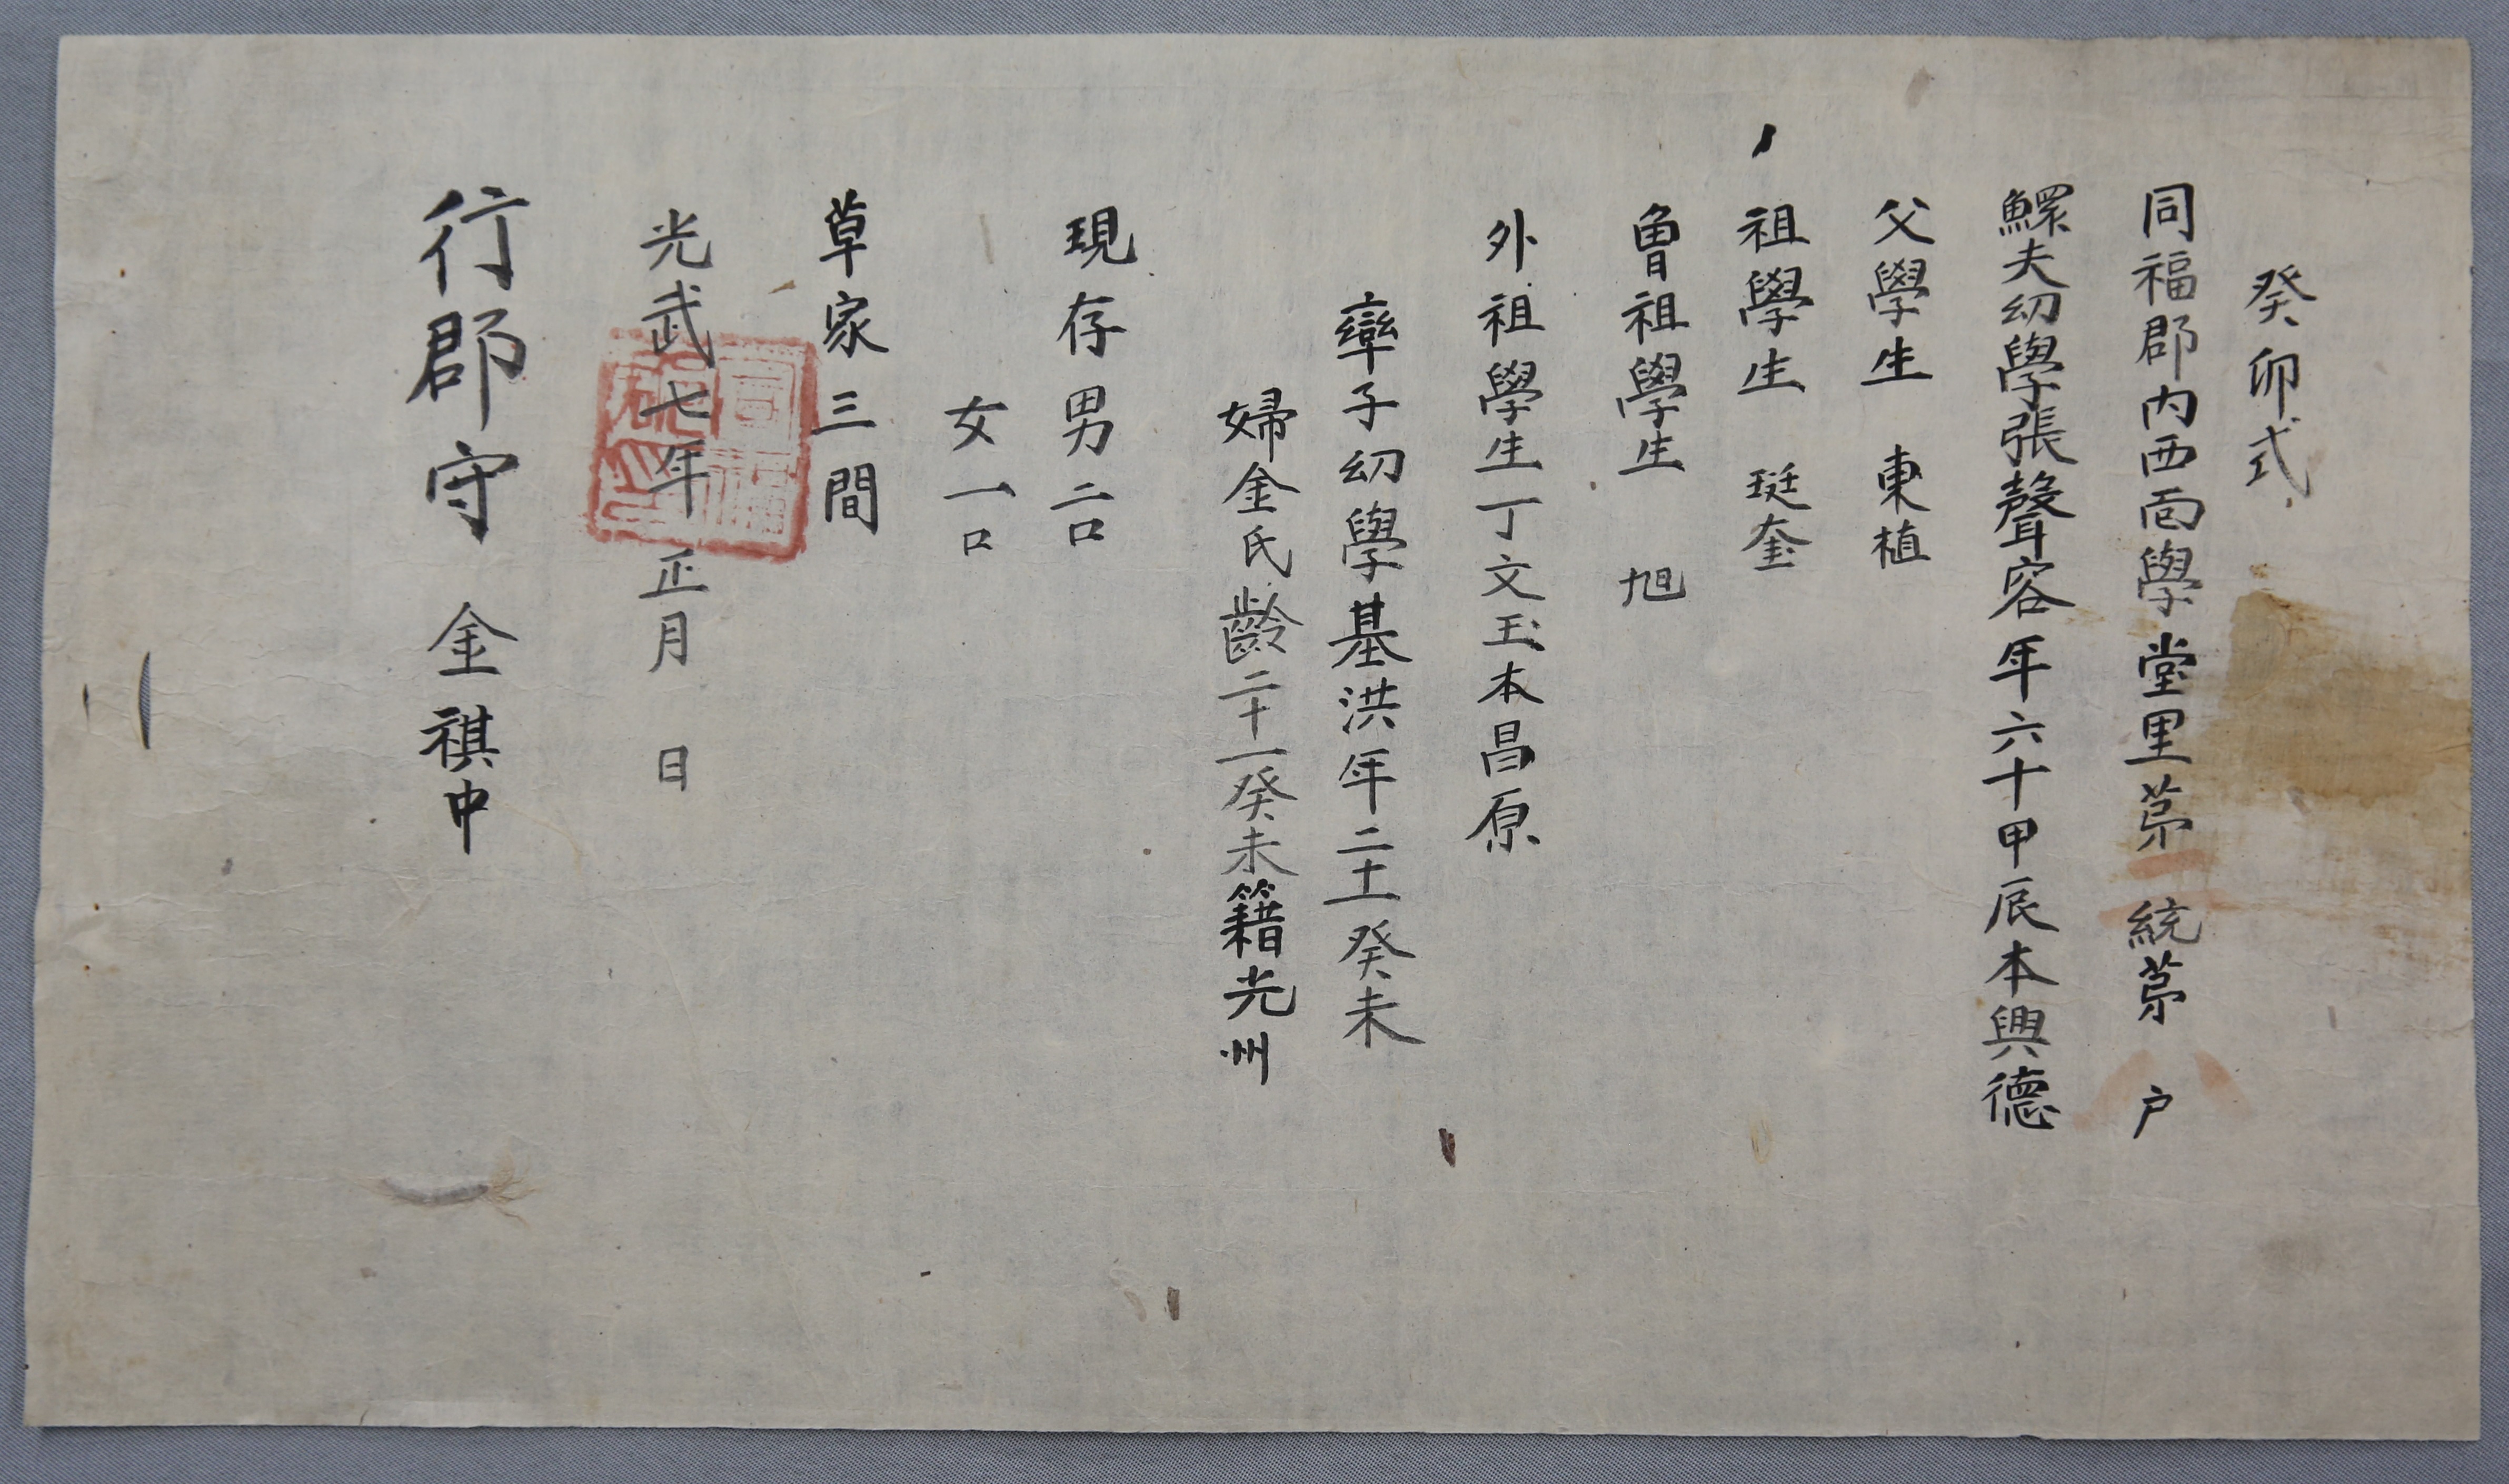 癸卯式
同福郡內西面學堂里苐二統苐八户
鰥夫幼學張聲容年六十甲辰本興德
父學生 東植
祖學生 珽奎
曾祖學生 旭
外祖學生丁文玉本昌原
率子幼學基洪年二十一癸未
婦金氏齡二十一癸未籍光州
現存男二口
女一口
草家三間
光武七年正月 日
行郡守 金祺中